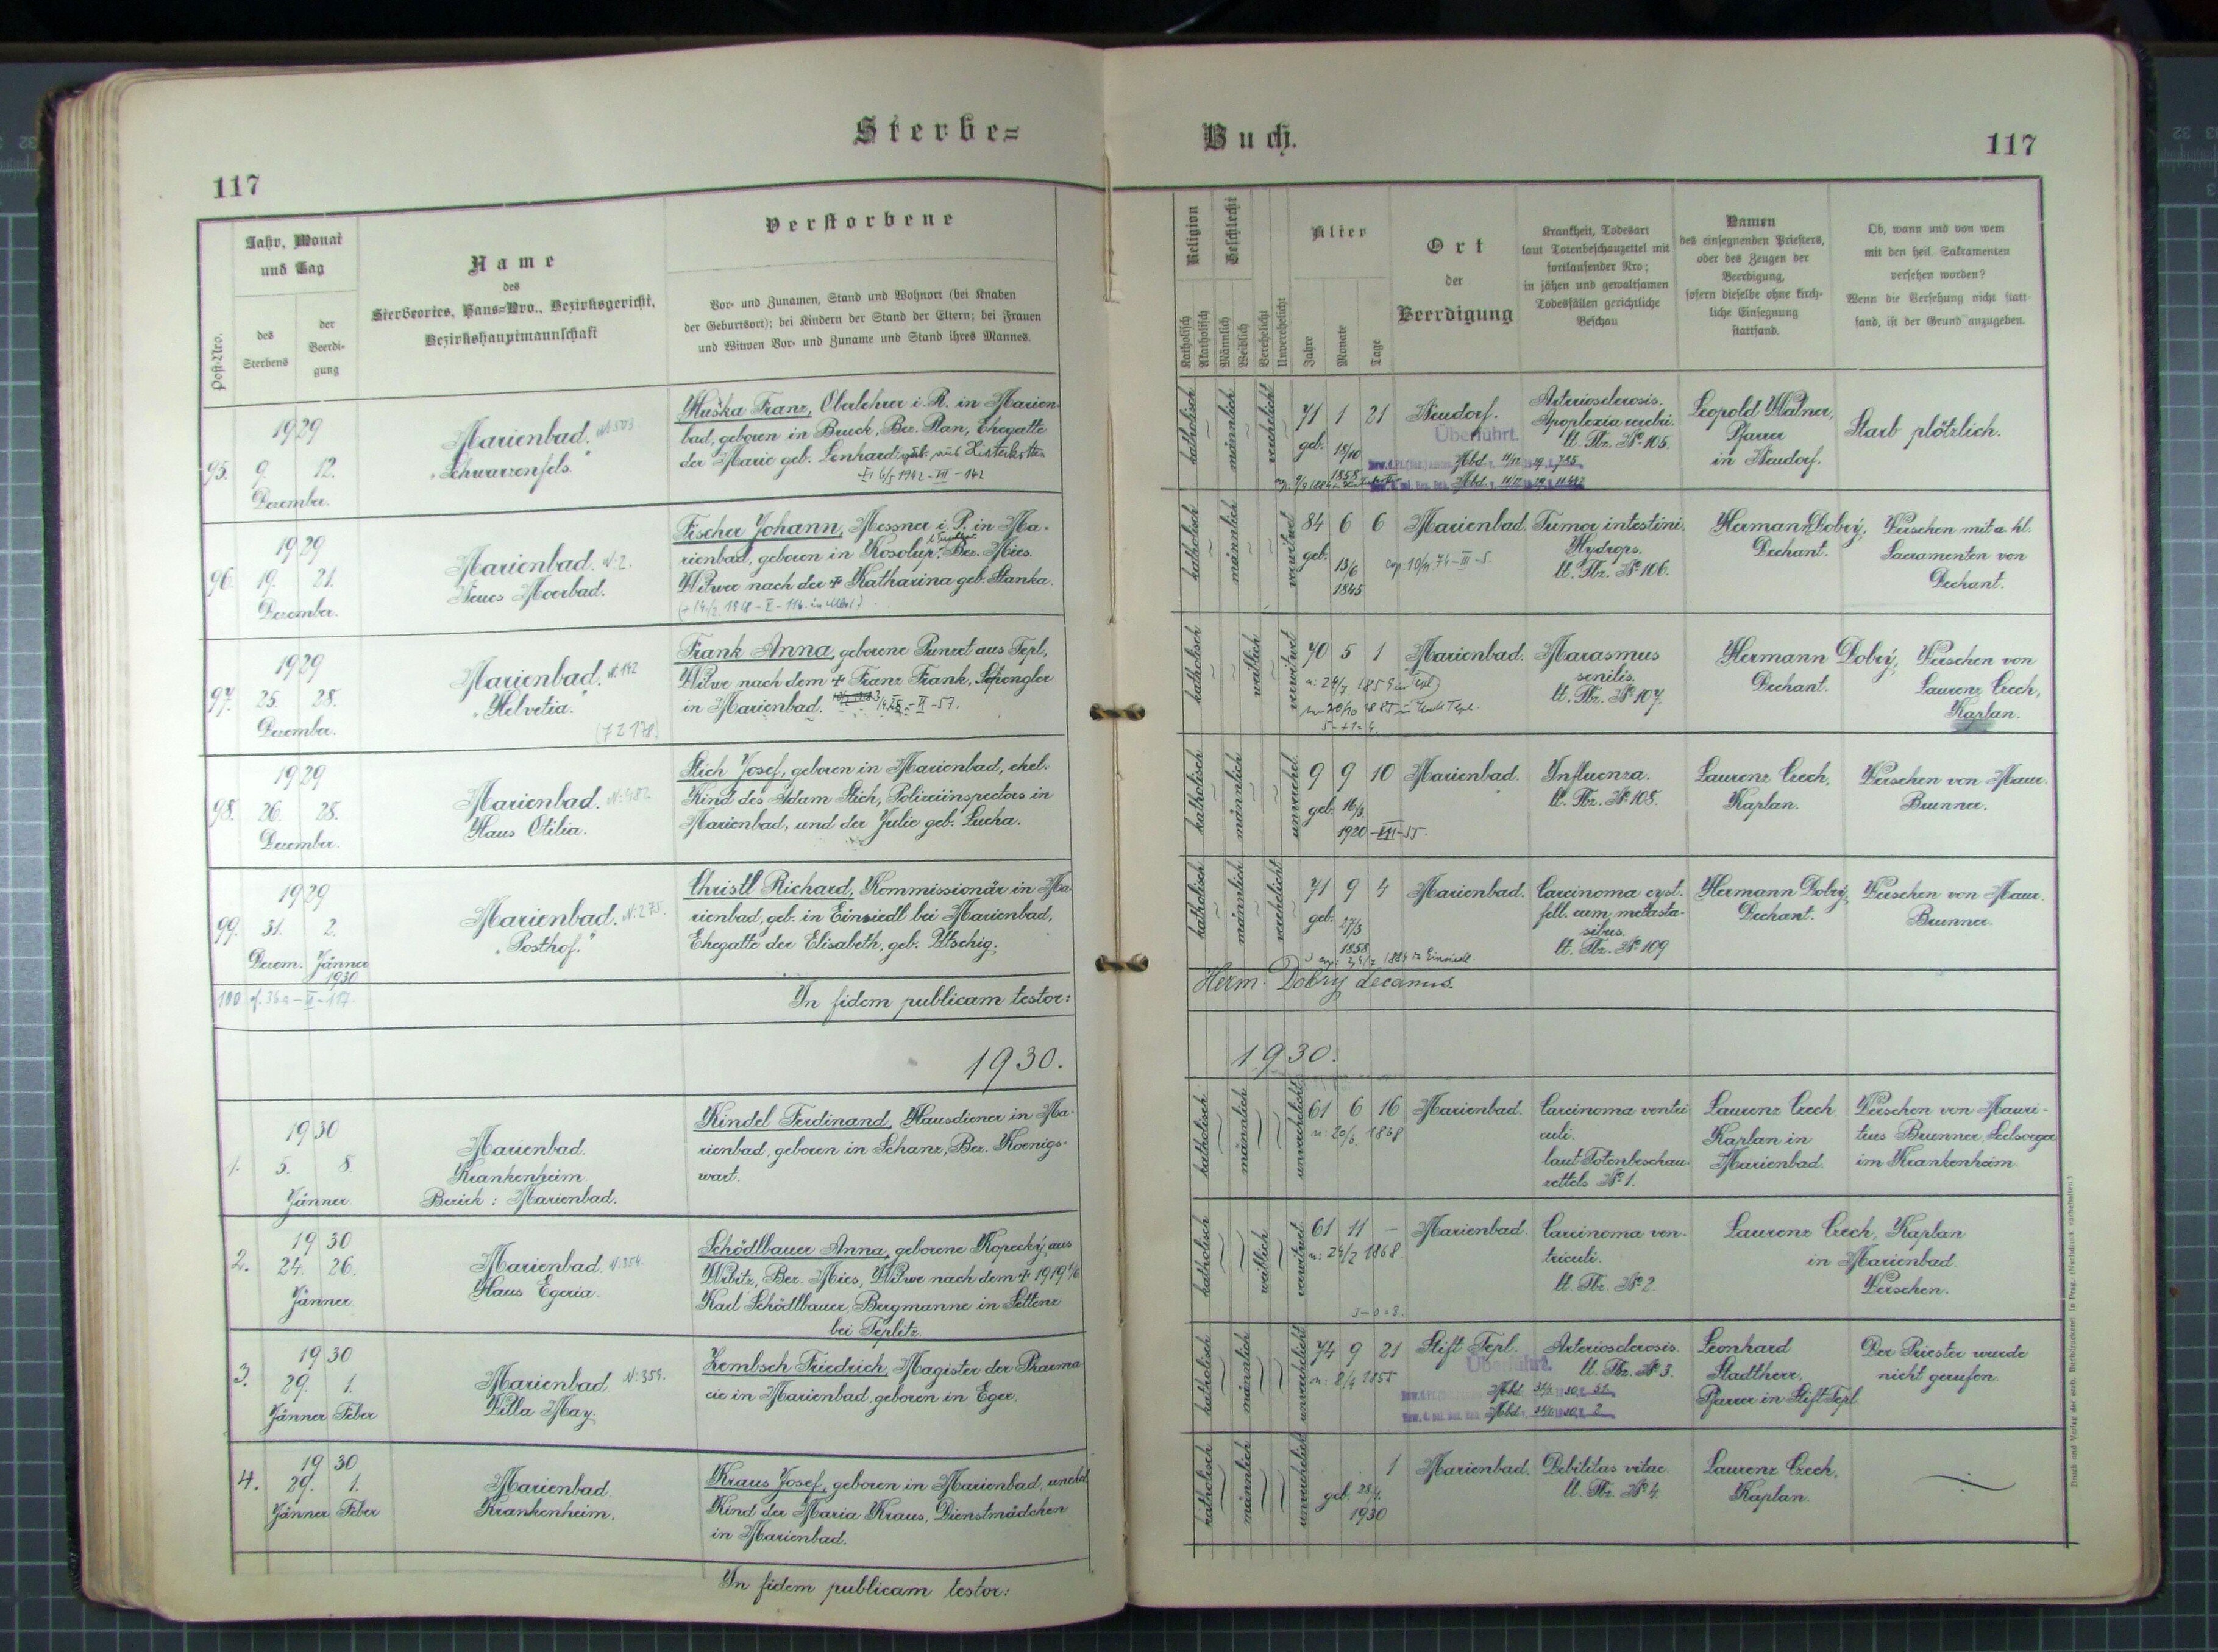 Sterbe=
Buch.
117
117
Post-Nro.
Jahr, Monat
und Tag
des
Sterbens
der
Beerdi-
gung
Name
des
Sterbeortes, Haus=Nro., Bezirksgericht,
Bezirkshauptmannschaft
Verstorbene
Vor- und Zunamen, Stand und Wohnort (bei Knaben
der Geburtsort); bei Kindern der Stand der Eltern; bei Frauen
und Witwen Vor- und Zuname und Stand ihres Mannes.
Religion
Katholisch
Akatholisch
Geschlecht
Männlich
Weiblich
Verehelicht
Unverehelicht
Alter
Jahre
Monate
Tage
Ort
der
Beerdigung
Krankheit, Todesart
laut Totenbeschauzettel mit
fortlaufender Nro;
in jähen und gewaltsamen
Todesfällen gerichtliche
Beschau
Namen
des einsegnenden Priesters,
oder des Zeugen der
Beerdigung,
sofern dieselbe ohne kirch-
liche Einsegnung
stattfand.
Ob, wann und von wem
mit den heil. Sakramenten
versehen worden?
Wenn die Versehung nicht statt-
fand, ist der Grund anzugeben.
1929
95. 9. 12.
Dezember.
Marienbad. N: 503
"Schwarzenfels."
Huška Franz, Oberlehrer i. R. in Marien-
bad, geboren in Bruck, Bez. Plan, Ehegatte
der Marie geb. Lenhard
6/5 1942 - III - 142
katholisch männlich verehelicht 71 1 21
geb. 18/10
1858
Neudorf.
Überführt.
Arteriosclerosis.
Apoplexia cerebri.
lt. Tbz. No 105.
Leopold Walner,
Pfarrer
in Neudorf.
Starb plötzlich.
1929
96. 19. 21.
Dezember.
Marienbad. N: 2.
Neues Moorbad.
Fischer Johann, Messner i. P. in Ma-
rienbad, geboren in Kosolup, Bez. Mies.
Witwer nach der + Katharina geb. Stanka.
katholisch männlich verwitwet 84 6 6
geb. 13/6
1845
Marienbad.
cop. 10/11 74 - III - 5.
Tumor intestini.
Hydrops.
lt. Tbz. No 106.
Hermann Dobrý,
Dechant.
Versehen mit a hl.
Sacramenten von
Dechant.
1929
97. 25. 28.
Dezember.
Marienbad. N: 142
"Helvetia."
Frank Anna, geborene Punzet aus Tepl,
Witwe nach dem + Franz Frank, Spengler
in Marienbad.
katholisch weiblich verwitwet 70 5 1
n: 24/7 1859 in Tepl)
5-+1=4.
Marienbad.
Marasmus
senilis.
lt. Tbz. No 107.
Hermann Dobrý,
Dechant.
Versehen von
Laurenz Czech,
Kaplan.
1929
98. 26. 28.
Dezember.
Marienbad. N: 482
Haus Otilia.
Stich Josef, geboren in Marienbad, ehel.
Kind des Adam Stich, Polizeiinspectors in
Marienbad, und der Julie geb. Lucha.
katholisch männlich unverehel. 9 9 10
geb. 16/3.
1920 - VII - 55.
Marienbad.
Influenza.
lt. Tbz. No 108.
Laurenz Czech,
Kaplan.
Versehen von Maur.
Brunner.
1929
99. 31. 2.
Dezem. Jänner
1930
Marienbad. N: 275.
"Posthof."
Christl Richard, Kommissionär in Ma-
rienbad, geb. in Einsiedl bei Marienbad,
Ehegatte der Elisabeth, geb. Utschig.
katholisch männlich verehelicht 71 9 4
geb. 27/3
1858
Marienbad.
Carcinoma cyst.
fell. cum metasta-
sibus.
lt. Tbz. No 109
Hermann Dobrý,
Dechant.
Versehen von Maur.
Brunner.
100
In fidem publicam testor:
Herm. Dobrý decanus.
1930.
1930.
1930
1. 5. 8.
Jänner
Marienbad.
Krankenheim.
Bezirk: Marienbad.
Kindel Ferdinand, Hausdiener in Ma-
rienbad, geboren in Schanz, Bez. Koenigs-
wart.
katholisch männlich unverehelicht 61 6 16
n: 20/6 1868
Marienbad.
Carcinoma ventri-
culi.
laut Totenbeschau-
zettels No 1.
Laurenz Czech
Kaplan in
Marienbad.
Versehen von Mauri-
tius Brunner, Seelsorger
im Krankenheim.
1930
2. 24. 26.
Jänner
Marienbad. N: 254.
Haus Egeria.
Schödlbauer Anna, geborene Kopecký aus
Wibitz, Bez. Mies, Witwe nach dem + 1919
Karl Schödlbauer, Bergmanne in Settenz
bei Teplitz.
katholisch weiblich verwitwet 61 11 -
n: 24/2 1868.
3-0=3.
Marienbad.
Carcinoma ven-
triculi.
lt. Tbz. No 2.
Laurenz Czech, Kaplan
in Marienbad.
Versehen.
1930
3. 29. 1.
Jänner Feber
Marienbad N: 359.
Villa May.
Zembsch Friedrich, Magister der Pharma-
cie in Marienbad, geboren in Eger.
katholisch männlich unverehelicht 74 9 21
n: 8/4 1855
Stift Tepl.
Überführt.
Arteriosclerosis.
lt. Tbz. No 3.
Leonhard
Stadtherr,
Pfarrer in Stift Tepl.
Der Priester wurde
nicht gerufen.
1930
4. 29. 1.
Jänner Feber
Marienbad.
Krankenheim.
Kraus Josef, geboren in Marienbad, unehel
Kind der Maria Kraus, Dienstmädchen
in Marienbad.
katholisch männlich unverehelicht 1
geb. 28/1.
1930
Marienbad.
Debilitas vitae.
lt. Tbz. No 4.
Laurenz Czech,
Kaplan.
In fidem publicam testor:
Druck und Verlag der erzb. Buchdruckerei in Prag. (Nachdruck vorbehalten.)